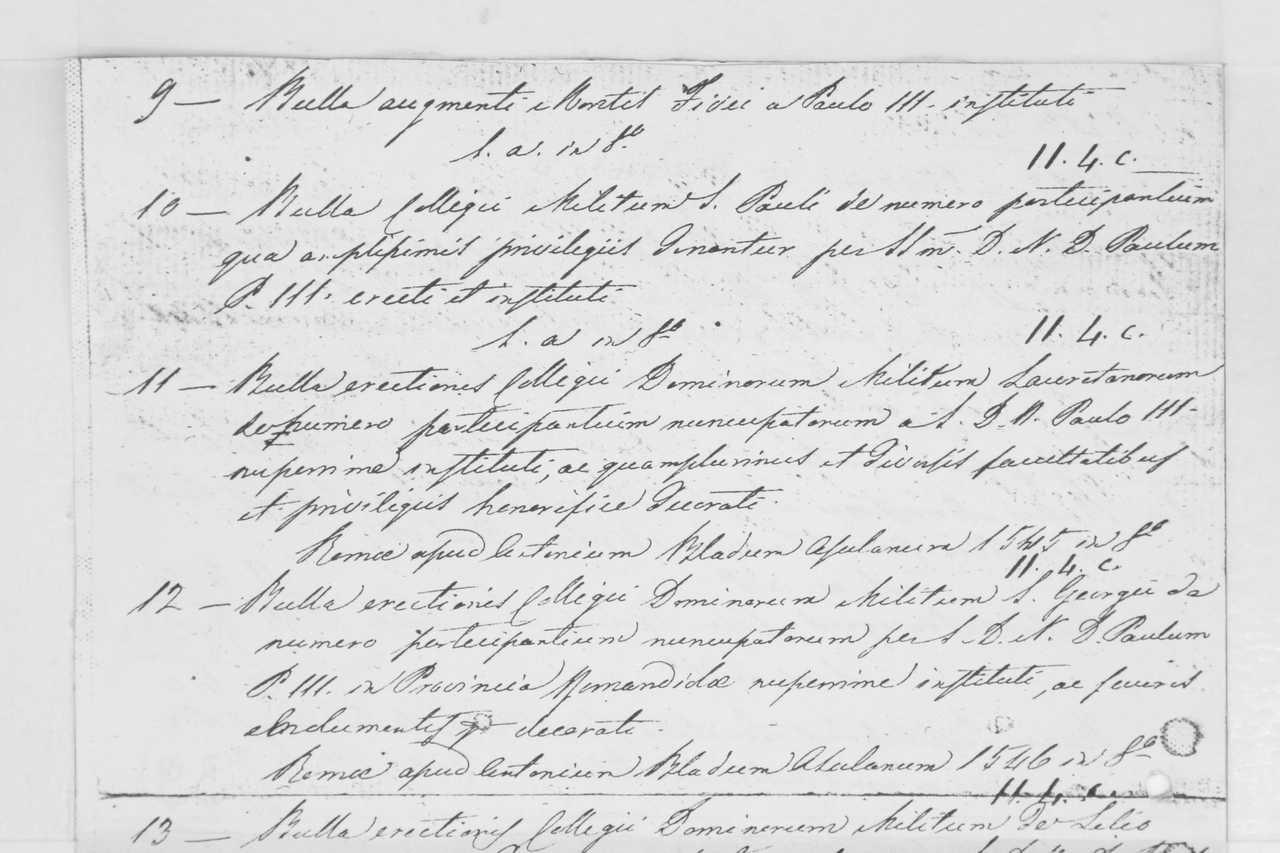 9 — Bulla augmenti Montis Fidei a Paulo III. instituti
s. a. in 8º
11. 4. c.
10 — Bulla Collegii Militum S. Pauli de numero participantium
qua amplissimis privilegiis donantur per SSm. D. N. D. Paulum
P. III. erecti et instituti
s. a in 8º
11. 4. c.
11 — Bulla erectionis Collegii Dominorum Militum Lauretanorum
de numero participantium nuncupatorum a S. D. N. Paulo III.
nuperrime instituti, ac quamplurimis et diversis facultatibus
et privilegiis honorifice decorati.
Romæ apud Antonium Bladum Asulanum 1545 in 8º
11. 4. c.
12 — Bulla erectionis Collegii Dominorum Militum S. Georgii de
numero participantium nuncupatorum per S. D. N. D. Paulum
P. III. in Provincia Romandiolæ nuperrime instituti, ac
decorati.
Romæ apud Antonium Bladum Asulanum 1546 in 8º
11. 4. c.
13 — Bulla erectionis Collegii Dominorum Militum de Lilio